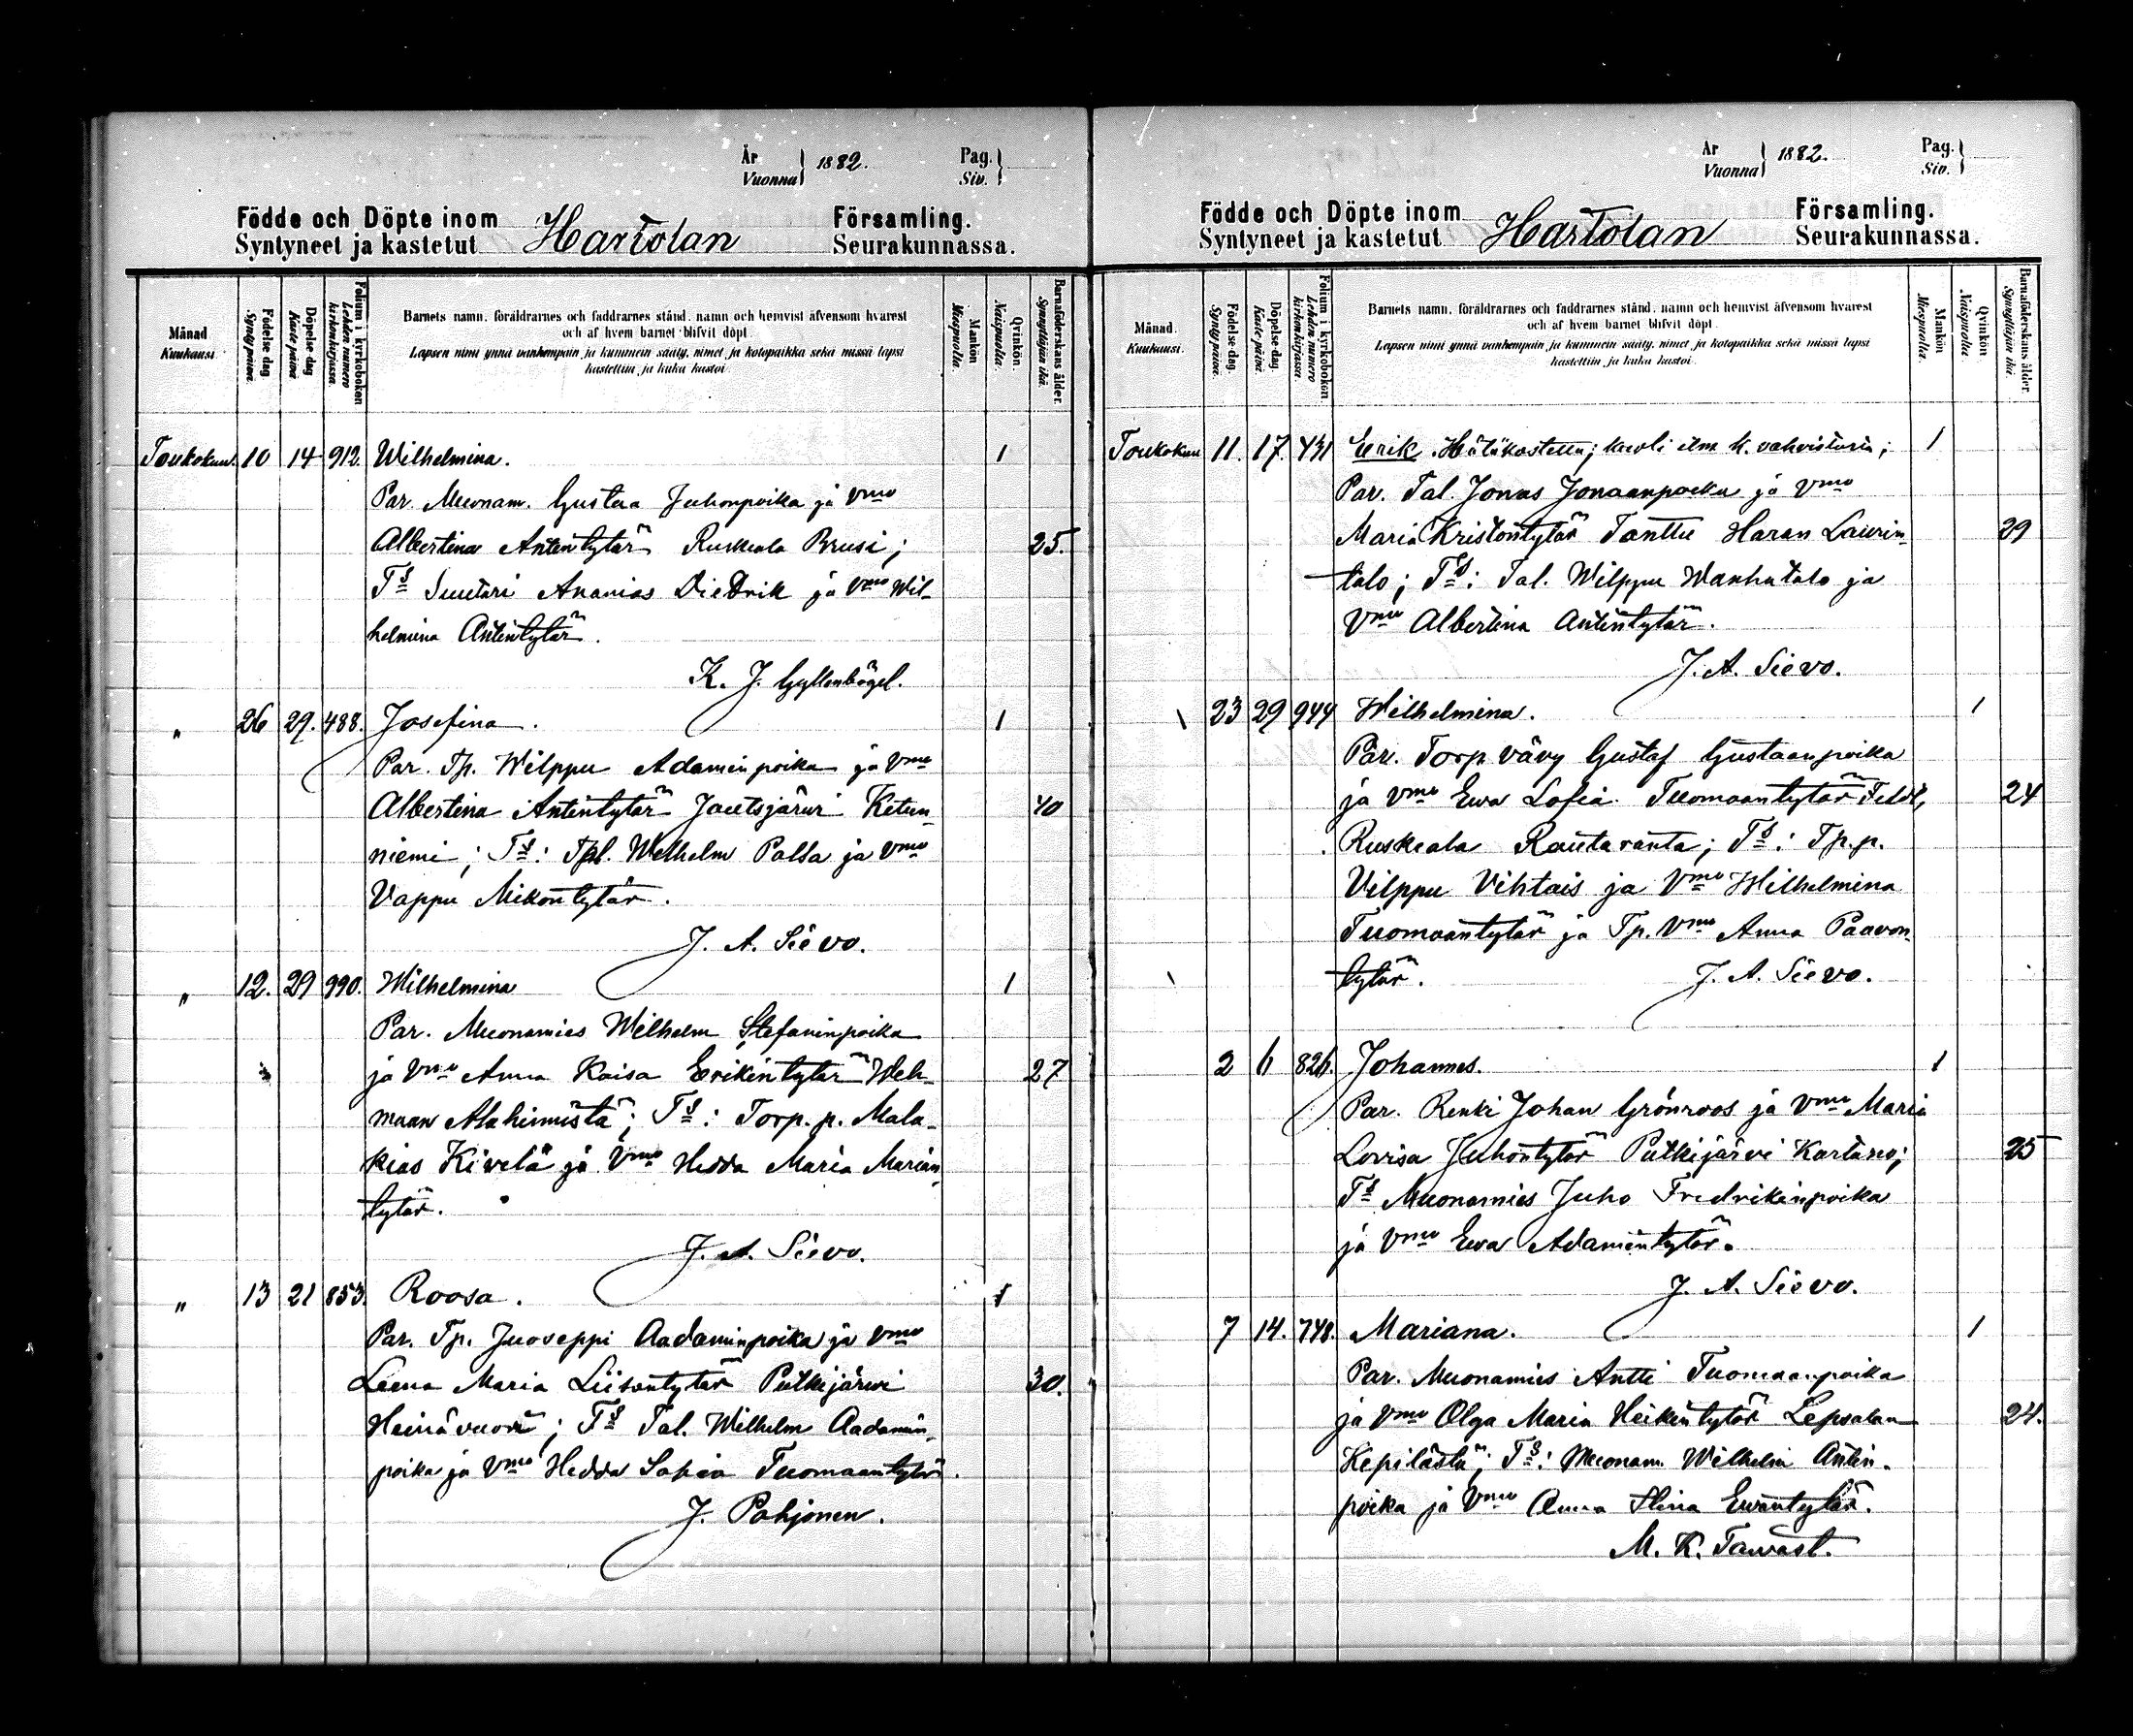 År
Vuonna } 1882. Pag.
Siv. }
Födde och Döpte inom Hartolan Församling.
Syntyneet ja kastetut Seurakunnassa.
Månad Kuukausi. Födelse dag Synty päivä. Döpelse dag Kaste päivä Folium i kyrkoboken Lehden numero kirkonkirjassa Barnets namn. föräldrarnes och faddrarnes stånd. namn och hemvist äfvensom hvarest Mankön Miespuolta. Qvinkön. Naispuolta. Barnaföderskans ålder. Synnyttäjän ikä.
och af hvem barnet blifvit döpt
Lapsen nimi ynnä vanhempain ja kummein sääty, nimet ja kotopaikka sekä missä lapsi
kastettiin ja kuka kastoi
Toukokuu. 10 14 912. Wilhelmina. 1
Par. Muonam. Gustaa Juhonpoika ja Vmo
Albertina Antintytär Ruskeala Prusi; 25.
Ts Suutari Ananias Diedrik ja Vmo Wil-
helmina Antintytär.
K. J. Gyllenbögel.
" 26 29. 488. Josefina. 1
Par. Tp. Wilppu Adaminpoika ja Vmo
Albertina Antintytär Jautsjärwi Ketun- 40
niemi; Ts: Tpl. Wilhelm Palsa ja Vmo
Vappu Mikontytär.
J. A. Sievo.
" 12. 29 990. Wilhelmina 1
Par. Muonamies Wilhelm Stefaninpoika
ja Vmo Anna Kaisa Erikintytär Weh- 27
maan Alahimistä; Ts: Torp. p. Mala-
kias Kivelä ja Vmo Hedda Maria Marian
tytär.
J. A. Sievo.
" 13 21 853. Roosa. 1
Par. Tp. Juoseppi Aadaminpoika ja Vmo
Leena Maria Liisantytär Putkijärwi 30.
Heinävuori; Ts Tal. Wilhelm Aadamin-
poika ja Vmo Hedda Sofia Tuomaantytär.
J. Pohjonen.
År
Vuonna } 1882. Pag.
Siv. }
Födde och Döpte inom Hartolan Församling.
Syntyneet ja kastetut Seurakunnassa.
Månad. Kuukausi. Födelse-dag. Synty päivä. Döpelse-dag. Kaste-päivä Folium i kyrkoboken Lehden numero kirkonkirjassa. Barnets namn. föräldrarnes och faddrarnes stånd. namn och hemvist äfvensom hvarest Mankön Miespuolta. Qvinkön Naispuolta Barnaföderskans ålder. Synnyttäjän ikä.
och af hvem barnet blifvit döpt.
Lapsen nimi ynnä vanhempain ja kummein sääty, nimet ja kotopaikka sekä missä lapsi
kastettiin ja kuka kastoi.
Toukokuu 11. 17. 431 Eerik. Hätäkastettu; kuoli ilm k. vahvistusta; 1
Par. Tal. Jonas Jonaanpoika ja Vmo
Maria Kristontytär Tanttu Haran Laurin- 29
talo; Ts: Tal. Wilppu Wanhatalo ja
Vmo Albertina Antintytär.
J. A. Sievo.
23 29 944 Wilhelmina. 1
Par. Torp vävy Gustaf Gustaanpoika
ja Vmo Ewa Sofia Tuomaantytär Feldt, 24
Ruskeala Rautaranta; Ts: Tp.p.
Vilppu Vihtais ja Vmo Wilhelmina
Tuomaantytär ja Tp. Vmo Anna Paavon-
tytär. J. A. Sievo.
2 6 826. Johannes. 1
Par. Renki Johan Grönroos ja Vmo Maria
Lovisa Juhontytär Putkijärvi Kartano; 25
Ts Muonamies Juho Fredrikinpoika
ja Vmo Ewa Adamintytär.
J. A. Sievo.
7 14. 748. Mariana. 1
Par. Muonamies Antti Tuomaanpoika
ja Vmo Olga Maria Heikintytär Lepsalan 24.
Kepilästä; Ts: Muonam. Wilhelm Antin-
poika ja Vmo Anna Stina Ewantytär.
M. K. Tawast.